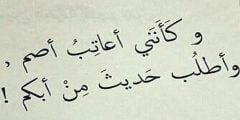 و كَأَنَنَي أعاتِبُ أصم ,
وأطلُب حَديثَ مِنْ أبكم !